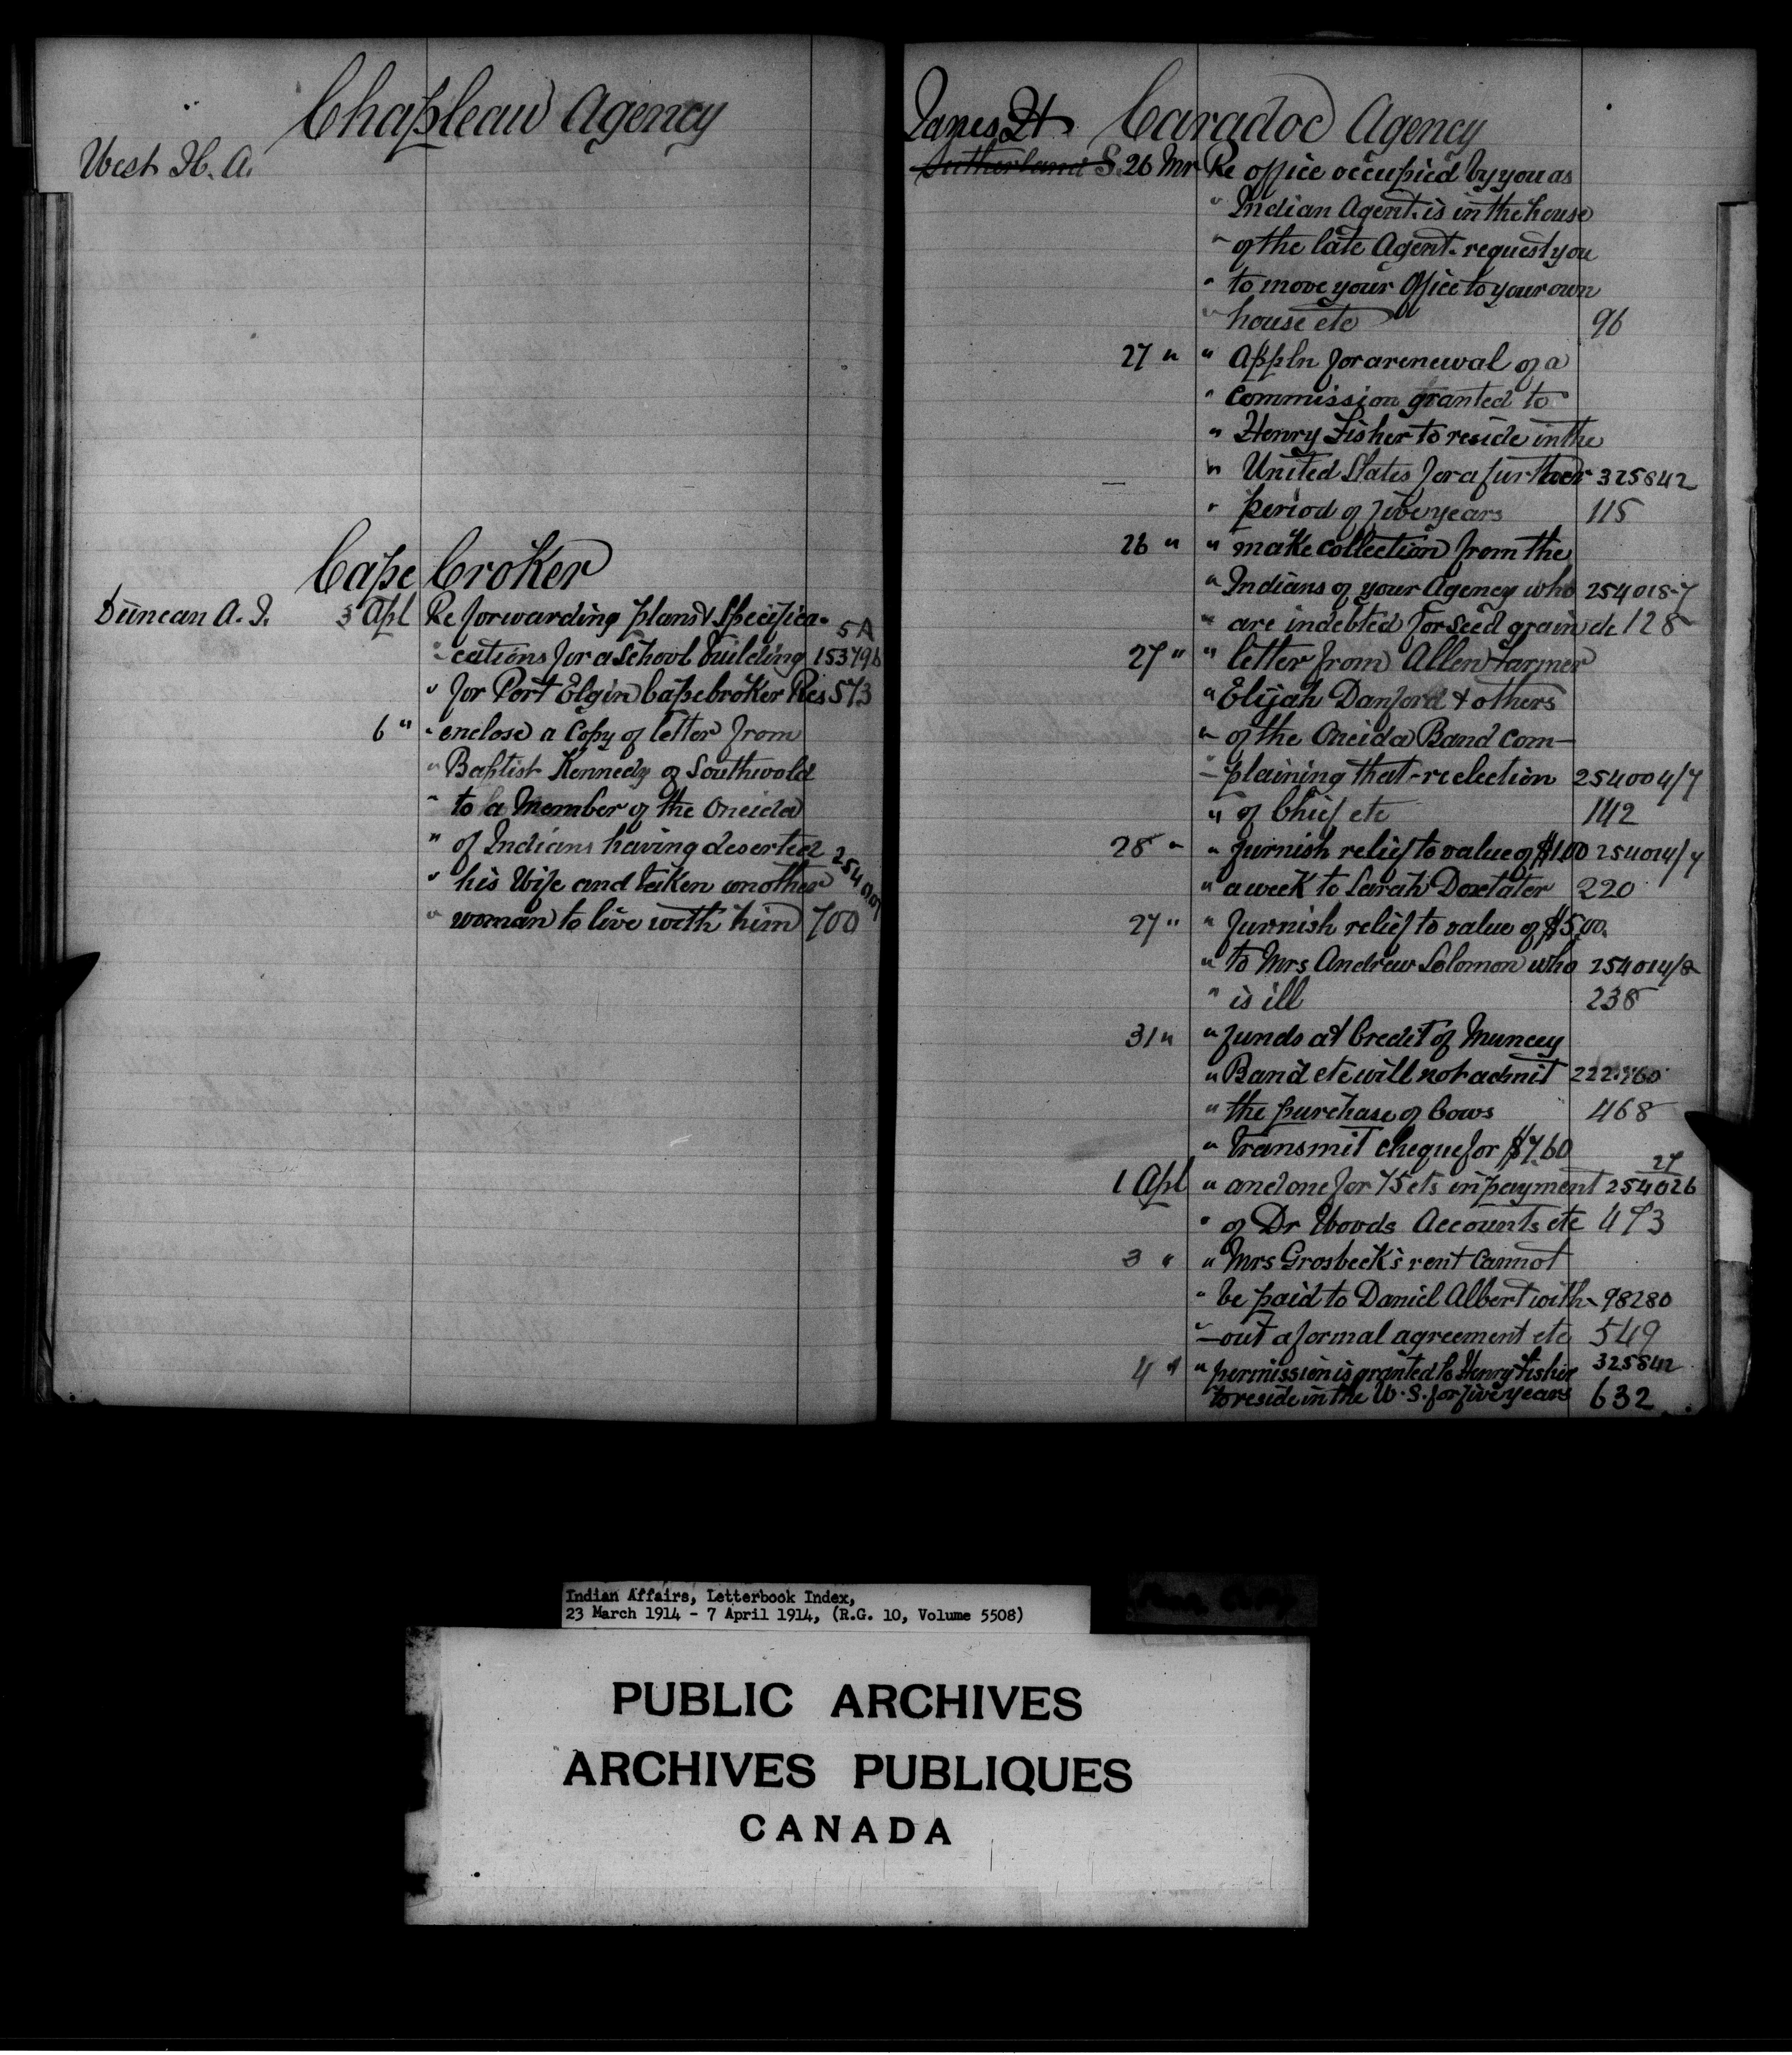 Chapleau Agency
West H. A.
Cape Croker
Duncan A. J. 3 Apl Re forwarding plans & Specifica- 5A
" cations for a School building 153796
" for Port Elgin Cape Croker Res 573
6 " " enclose a Copy of letter from
" Baptist Kennedy of Southwold
" to a Member of the Oneida
" of Indians having deserted
" his Wife and taken another 254001
" woman to live with him 700
Caradoc Agency
Sutherland S. 26 Mr Re office occupied by you as
" Indian Agent. is in the house
" of the late Agent. request you
" to move your Office to your own
" house etc 96
27 " " Appln for a renewal of a
" Commission granted to
" Henry Fisher to reside in the
" United States for a further 325842
" period of five years 115
26 " " make collection from the
" Indians of your Agency who 254018-7
" are indebted for seed grain etc 128
27 " " letter from Allen Farmer
" Elijah Danford & others
" of the Oneida Band com-
" -plaining that - reelection 254004/7
" of Chief etc 142
28 " " furnish relief to value of $1.00 254014/7
" a week to Sarah Doxtater 220
27 " " furnish relief to value of $5.00.
" to Mrs Andrew Solomon who 254014/8
" is ill 238
31 " " funds at Credit of Muncey
" Band etc will not admit 222.760
" the purchase of Cows 468
" Transmit cheque for $7.60
1 Apl " and one for 75 cts in payment 27 254026
" of Dr Woods Accounts etc 473
3 " " Mrs Grosbeck's rent Cannot
" be paid to Daniel Albert with- 98280
" -out a formal agreement etc 549
4 " " permission is granted to Henry Fisher 325842
to reside in the U. S. for five years 632
Indian Affairs, Letterbook Index,
23 March 1914 - 7 April 1914, (R.G. 10, Volume 5508)
PUBLIC ARCHIVES
ARCHIVES PUBLIQUES
CANADA